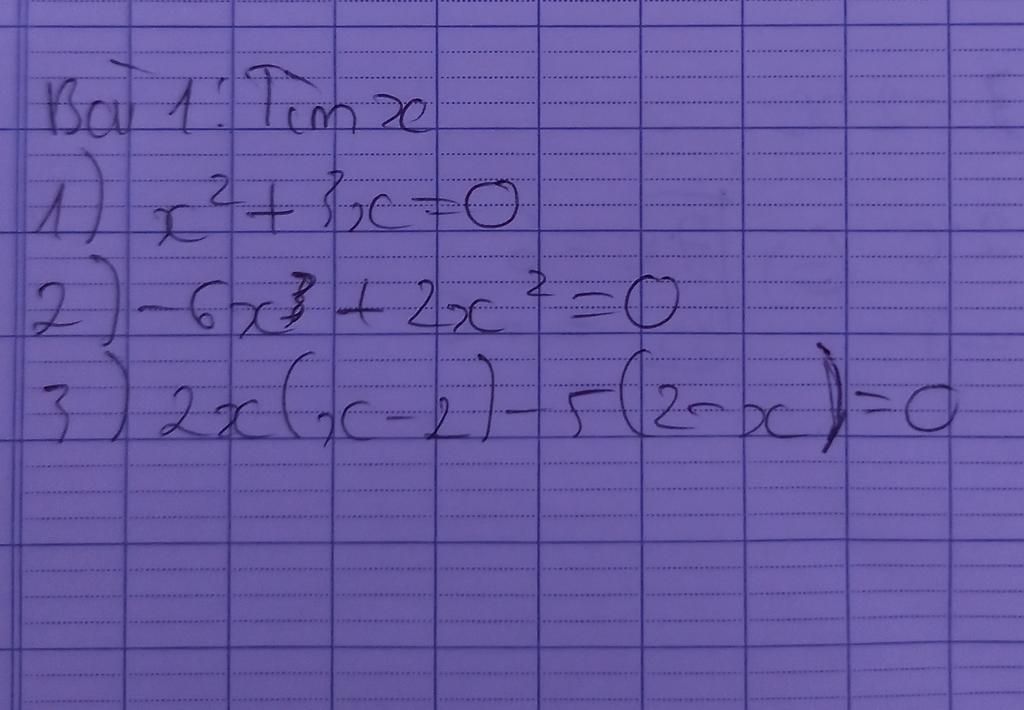 Bài 1: Tìm x
1) x² + 3x = 0
2) -6x³ + 2x² = 0
3) 2x(x - 2) - 5(2 - x) = 0